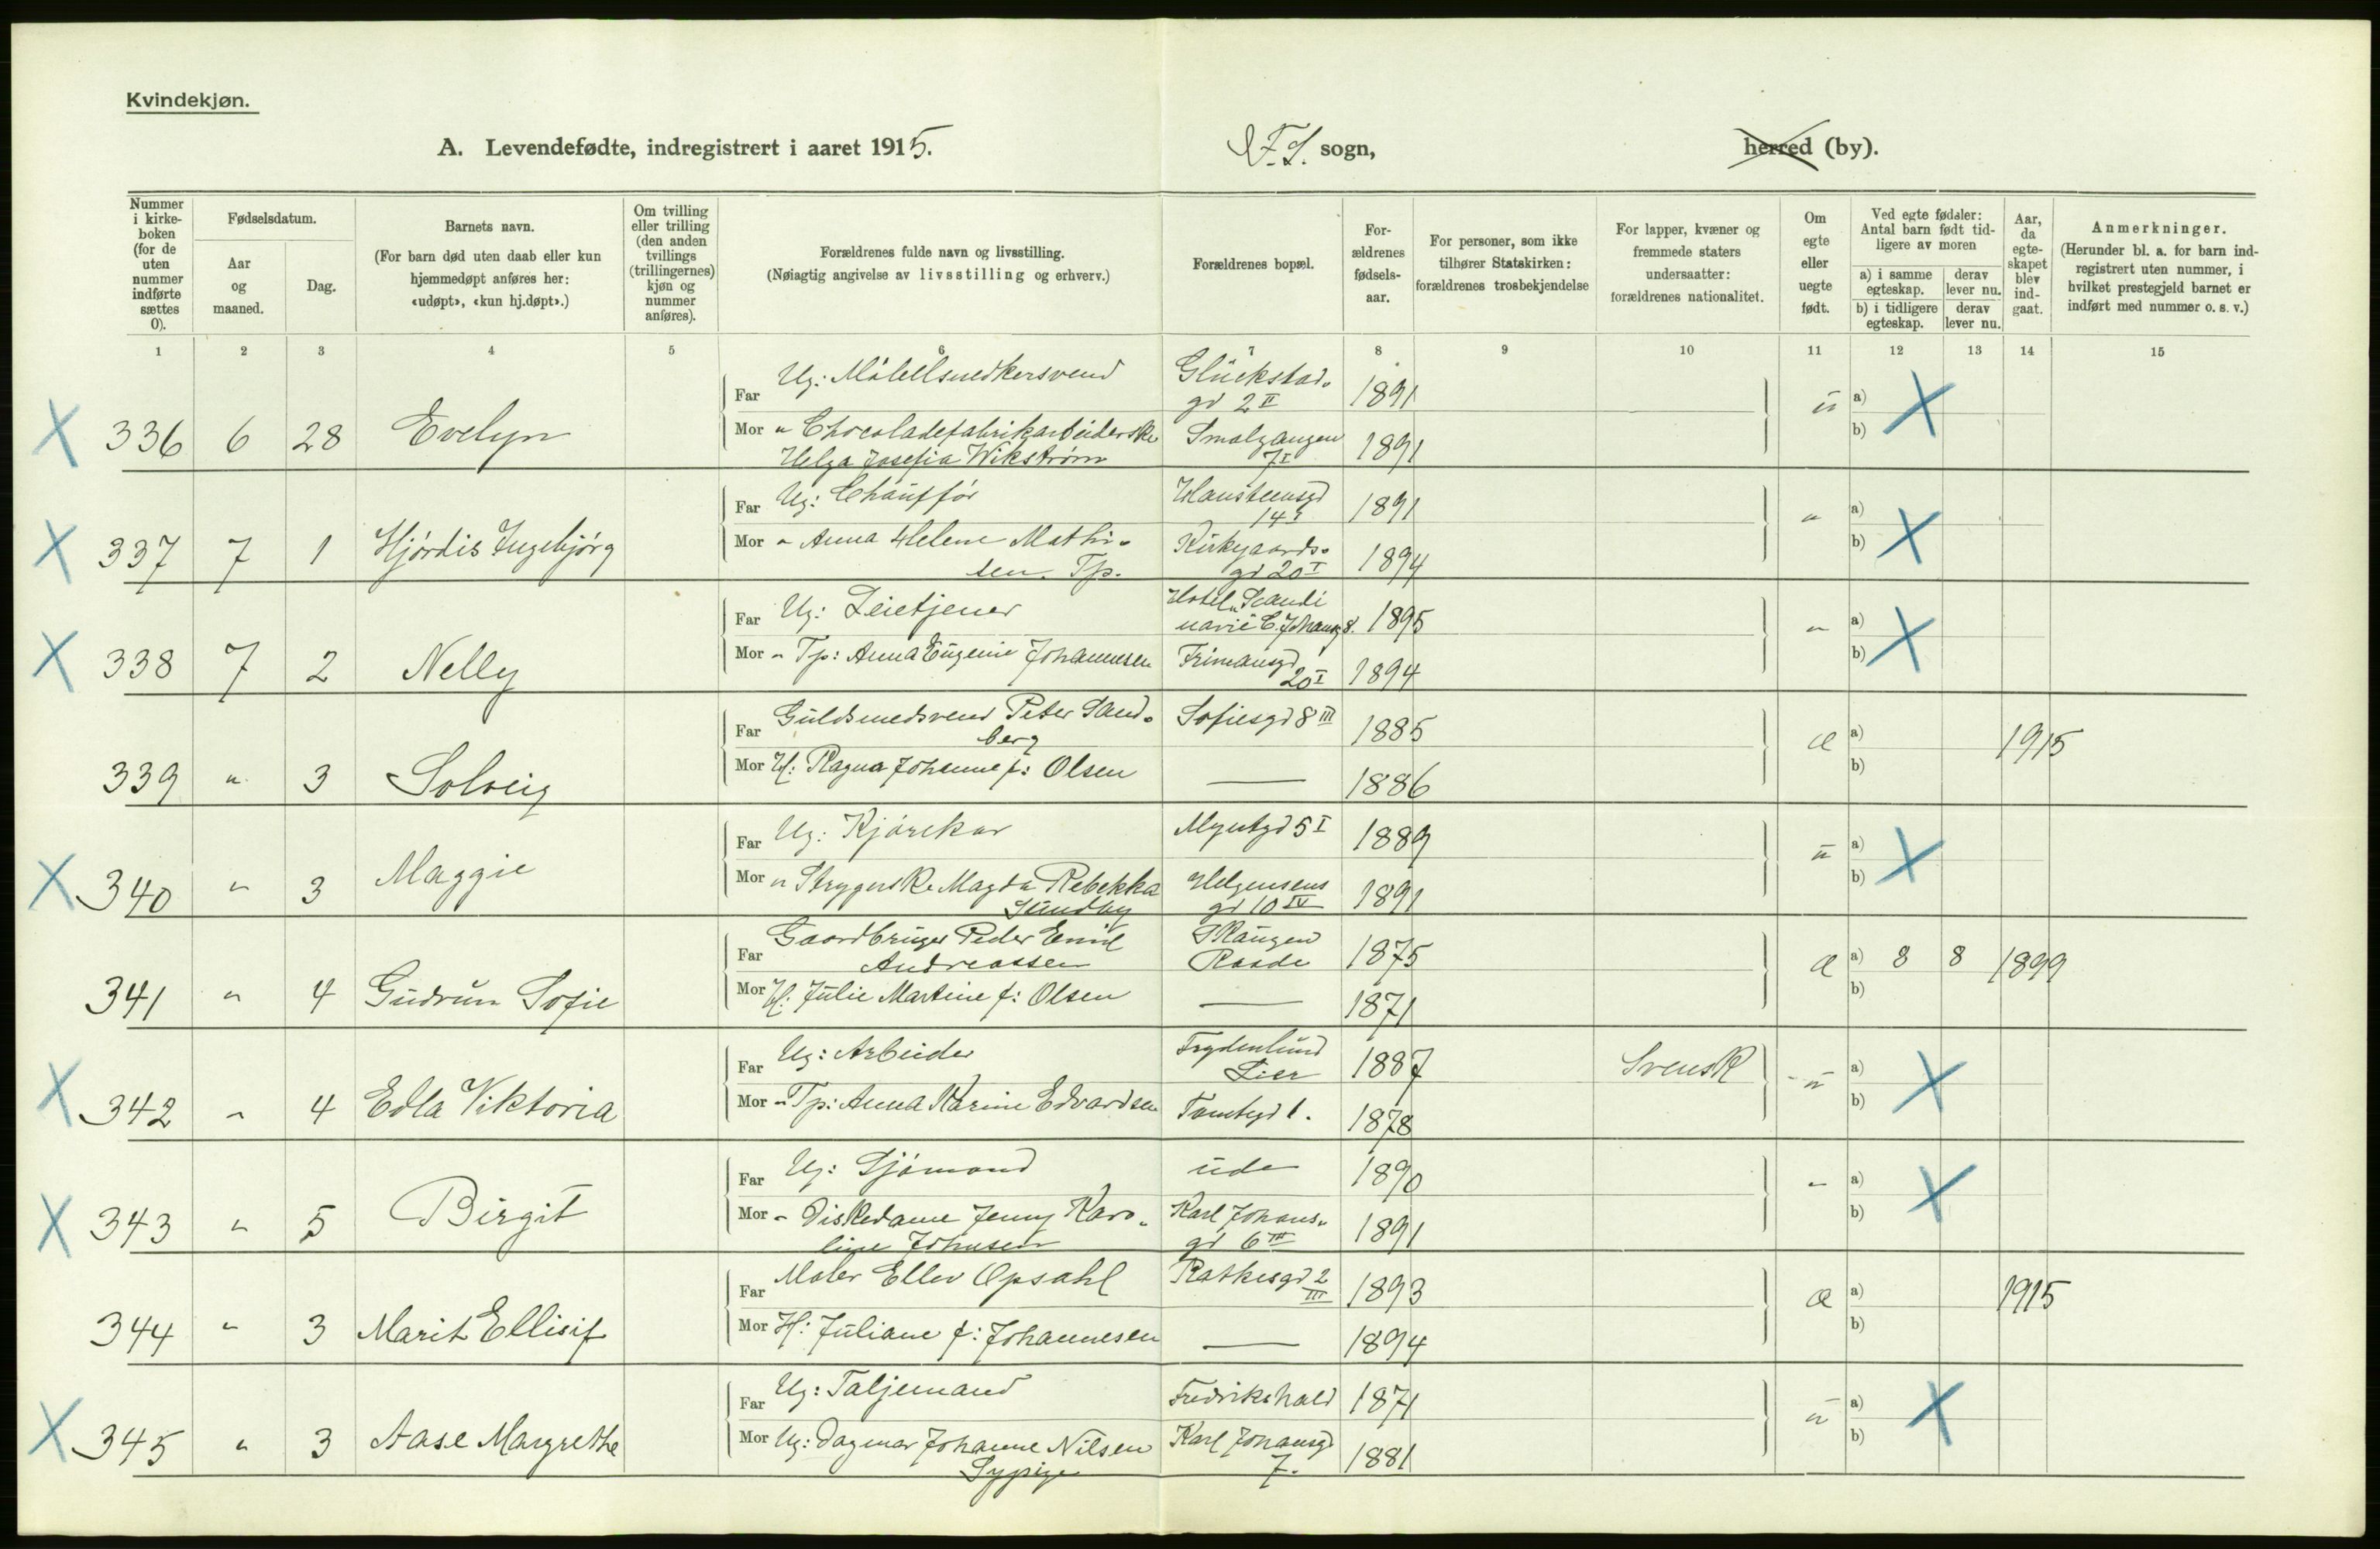 Kvindekjøn.
A. Levendefødte, indregistrert i aaret 1915. F.S. sogn, herred (by).
Nummer i kirke-boken (for de uten nummer indførte sættes 0).
Fødselsdatum.
Aar og maaned.
Dag.
Barnets navn.
(For barn død uten daab eller kun hjemmedøpt anføres her: «udøpt», «kun hj.døpt».)
Om tvilling eller trilling (den anden tvillings (trillingernes) kjøn og nummer anføres).
Forældrenes fulde navn og livsstilling.
(Nøiagtig angivelse av livsstilling og erhverv.)
Forældrenes bopæl.
For-ældrenes fødsels-aar.
For personer, som ikke tilhører Statskirken: forældrenes trosbekjendelse
For lapper, kvæner og fremmede staters undersaatter: forældrenes nationalitet.
Om egte eller uegte født.
Ved egte fødsler: Antal barn født tid-ligere av moren
a) i samme egteskap.
derav lever nu.
b) i tidligere egteskap.
derav lever nu.
Aar, da egte-skapet blev ind-gaat.
Anmerkninger.
(Herunder bl. a. for barn ind-registrert uten nummer, i hvilket prestegjeld barnet er indført med nummer o. s. v.)
1 2 3 4 5 6 7 8 9 10 11 12 13 14 15
Far Ug: Möbelsnedkersvend Glückstad- gd 2 II 1891
X 336 6 28 Evelyn ü a) b) X
Mor " Chocoladefabrikarbeiderske Helga Josefia Wikstrøm Smalgangen 7 I 1891
Far Ug: Chauffør Hausteensgd 14 I 1891
X 337 7 1 Hjørdis Ingebjørg " a) b) X
Mor " Anna Helene Mathi-sen. Tp. Kirkegaards-gd 20 I 1894
Far Ug: Leietjener Hotel "Scandi navie C. Johansg 8. 1895
X 338 7 2 Nelly " a) b) X
Mor " Tp: Anna Eugenie Johannesen Frimansgd 20 I 1894
Far Guldsmedsvend Peter Sand-berg Sofiesgd 8 III 1885
339 " 3 Solveig æ a) b) 1915
Mor H: Ragna Johanne f: Olsen — 1886
Far Ug: Kjørekar Myntgd 5 I 1889
X 340 " 3 Maggie ü a) b) X
Mor " Strygerske Magda Rebekka Sundby Helgesens gd 10 IV 1891
Far Gaardbruger Peder Emil Andreassen Skaugen Raade 1875
341 " 4 Gudrun Sofie æ a) 8 8 b) 1899
Mor H: Julie Martine f: Olsen — 1871
Far Ug: Arbeider Frydenlund Lier 1887 Svensk
X 342 " 4 Edla Viktoria ü a) b) X
Mor " Tp: Anna Karine Edvardsen Tomtegd 1. 1878
Far Ug: Sjømand ude 1890
X 343 " 5 Birgit " a) b) X
Mor " Diskedame Jenny Karo-line Johnsen Karl Johans-gd 6 III 1891
Far Maler Ellev Opsahl Rathkesgd 2 III 1893
344 " 3 Marit Ellisif æ a) b) 1915
Mor H: Juliane f: Johannesen — 1894
Far Ug: Taljemand Fredrikshald 1871
X 345 " 3 Aase Margrethe ü a) b) X
Mor Ug: Dagmar Johanne Nilsen Sypige Karl Johansgd 7. 1881